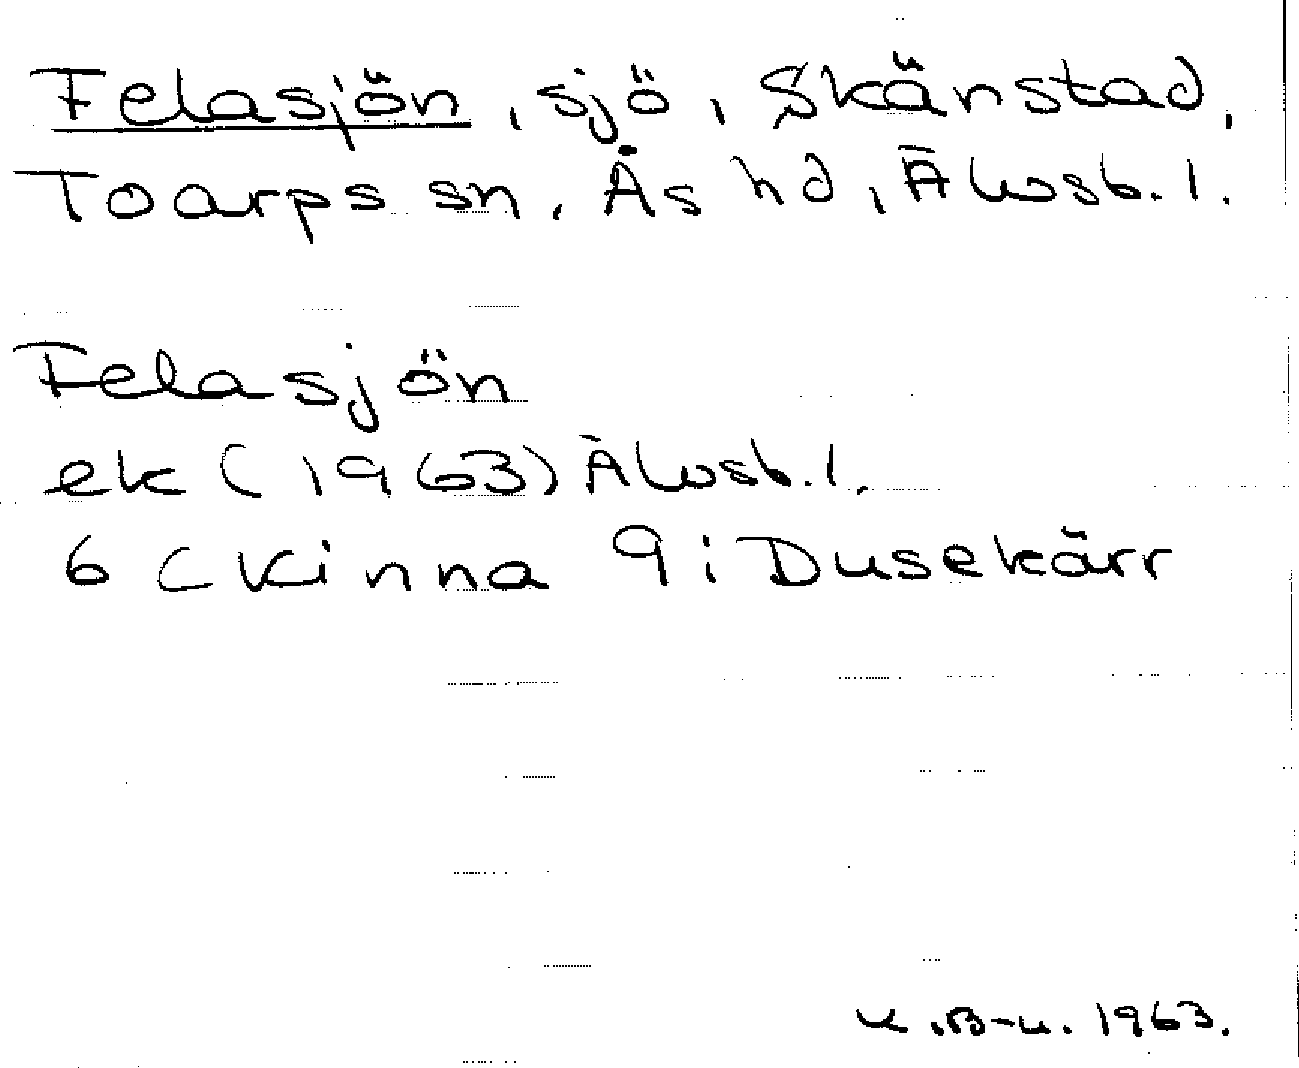 Felasjön, sjö, Skänstad,
Toarps sn, Ås hd, Älvsb. l.
Felasjön
ek (1963) Älvsb. l.
6 C Kinna 9 i Dusekärr
K.B-u. 1963.